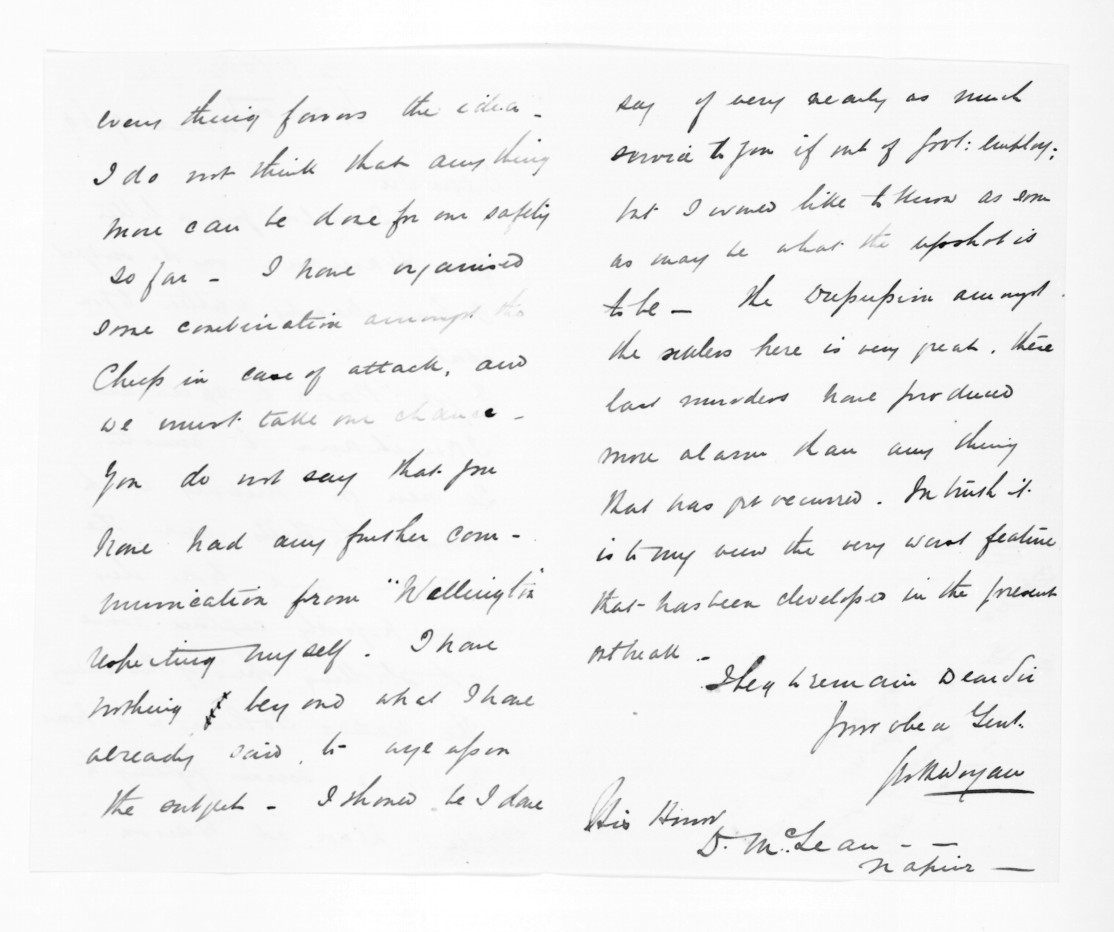 every thing favors the idea -
I do not think that any thing
more can be done for our safety
so far - I have organised
some combination amongst the
Chiefs in case of attack, and
we must take our chance -
You do not say that you
have had any further com-
munication from "Wellington"
respecting myself. I have
nothing beyond what I have
already said, to urge upon
the subject - I should be I dare
say of very nearly as much
service to you if out of Govt: employ;
but I would like to know as soon
as may be what the upshot is
to be - The Depression amongst
the settlers here is very great. these
last murders have produced
more alarm than any thing
that has yet occurred. In truth it
is to my view the very worst feature
that has been developed in the present
outbreak -
I beg to remain Dear Sir
Your obed Servt.
His Honor
D. McLean - -
Napier -